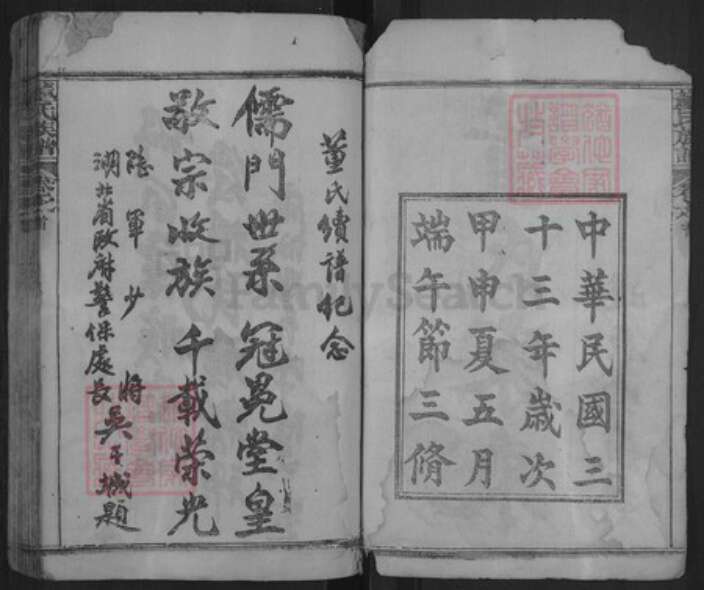 中華民國三
十三年歲次
甲申夏五月
端午節三脩
董氏續譜紀念
儒門世系冠冕堂皇
敬宗收族千載荣光
陸軍少將
湖北省政府警保處長
吳干城題
董氏族譜
FamilySearch